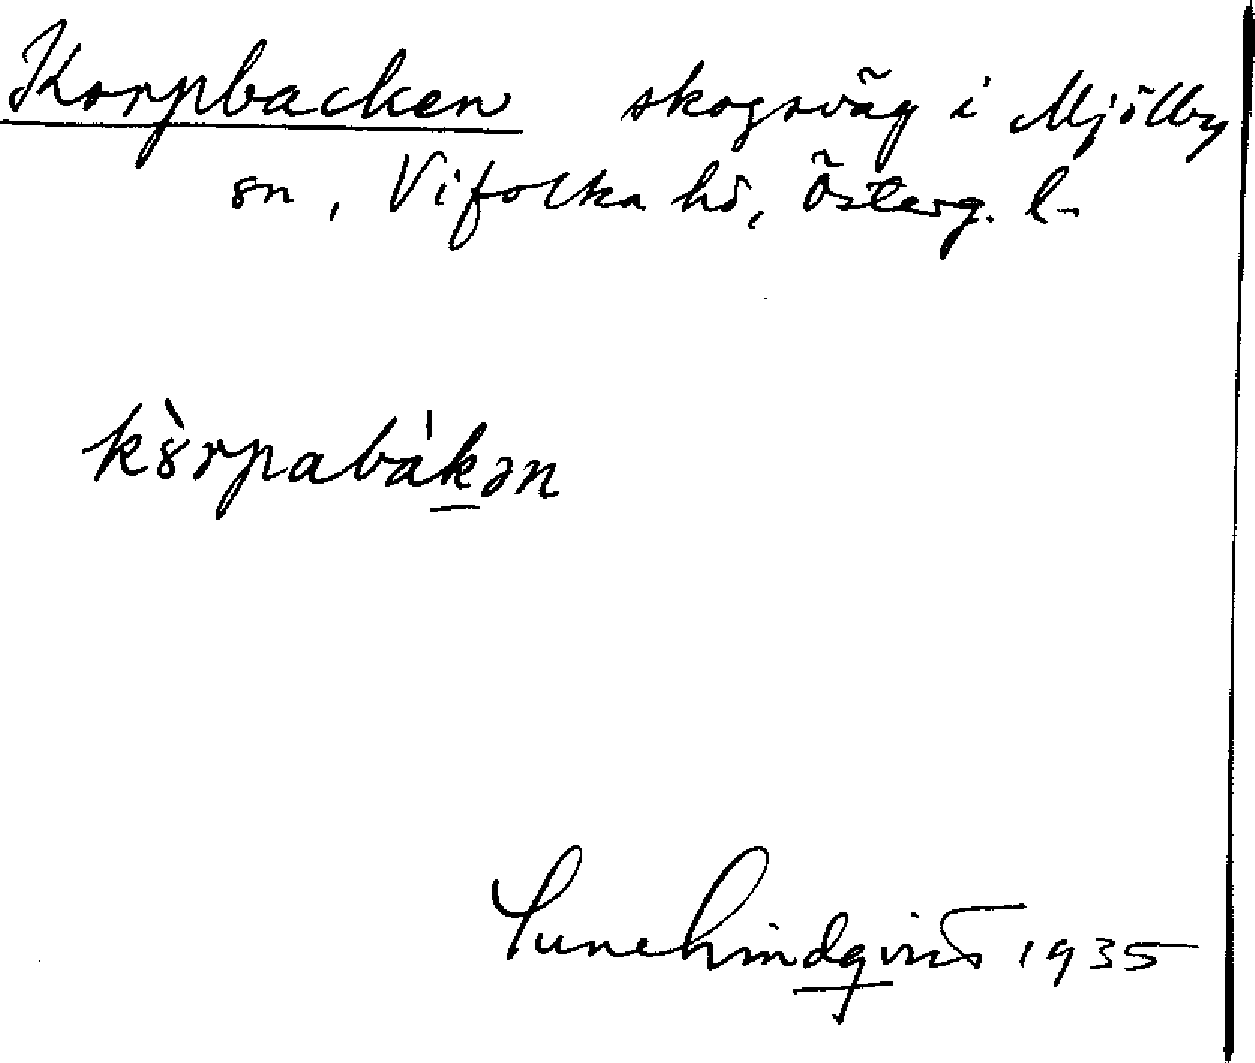 Korpbacken skogsväg i Mjölby
sn, Vifolka hd, Österg. l.
kòrpabákən
Sune Lindqvist 1935